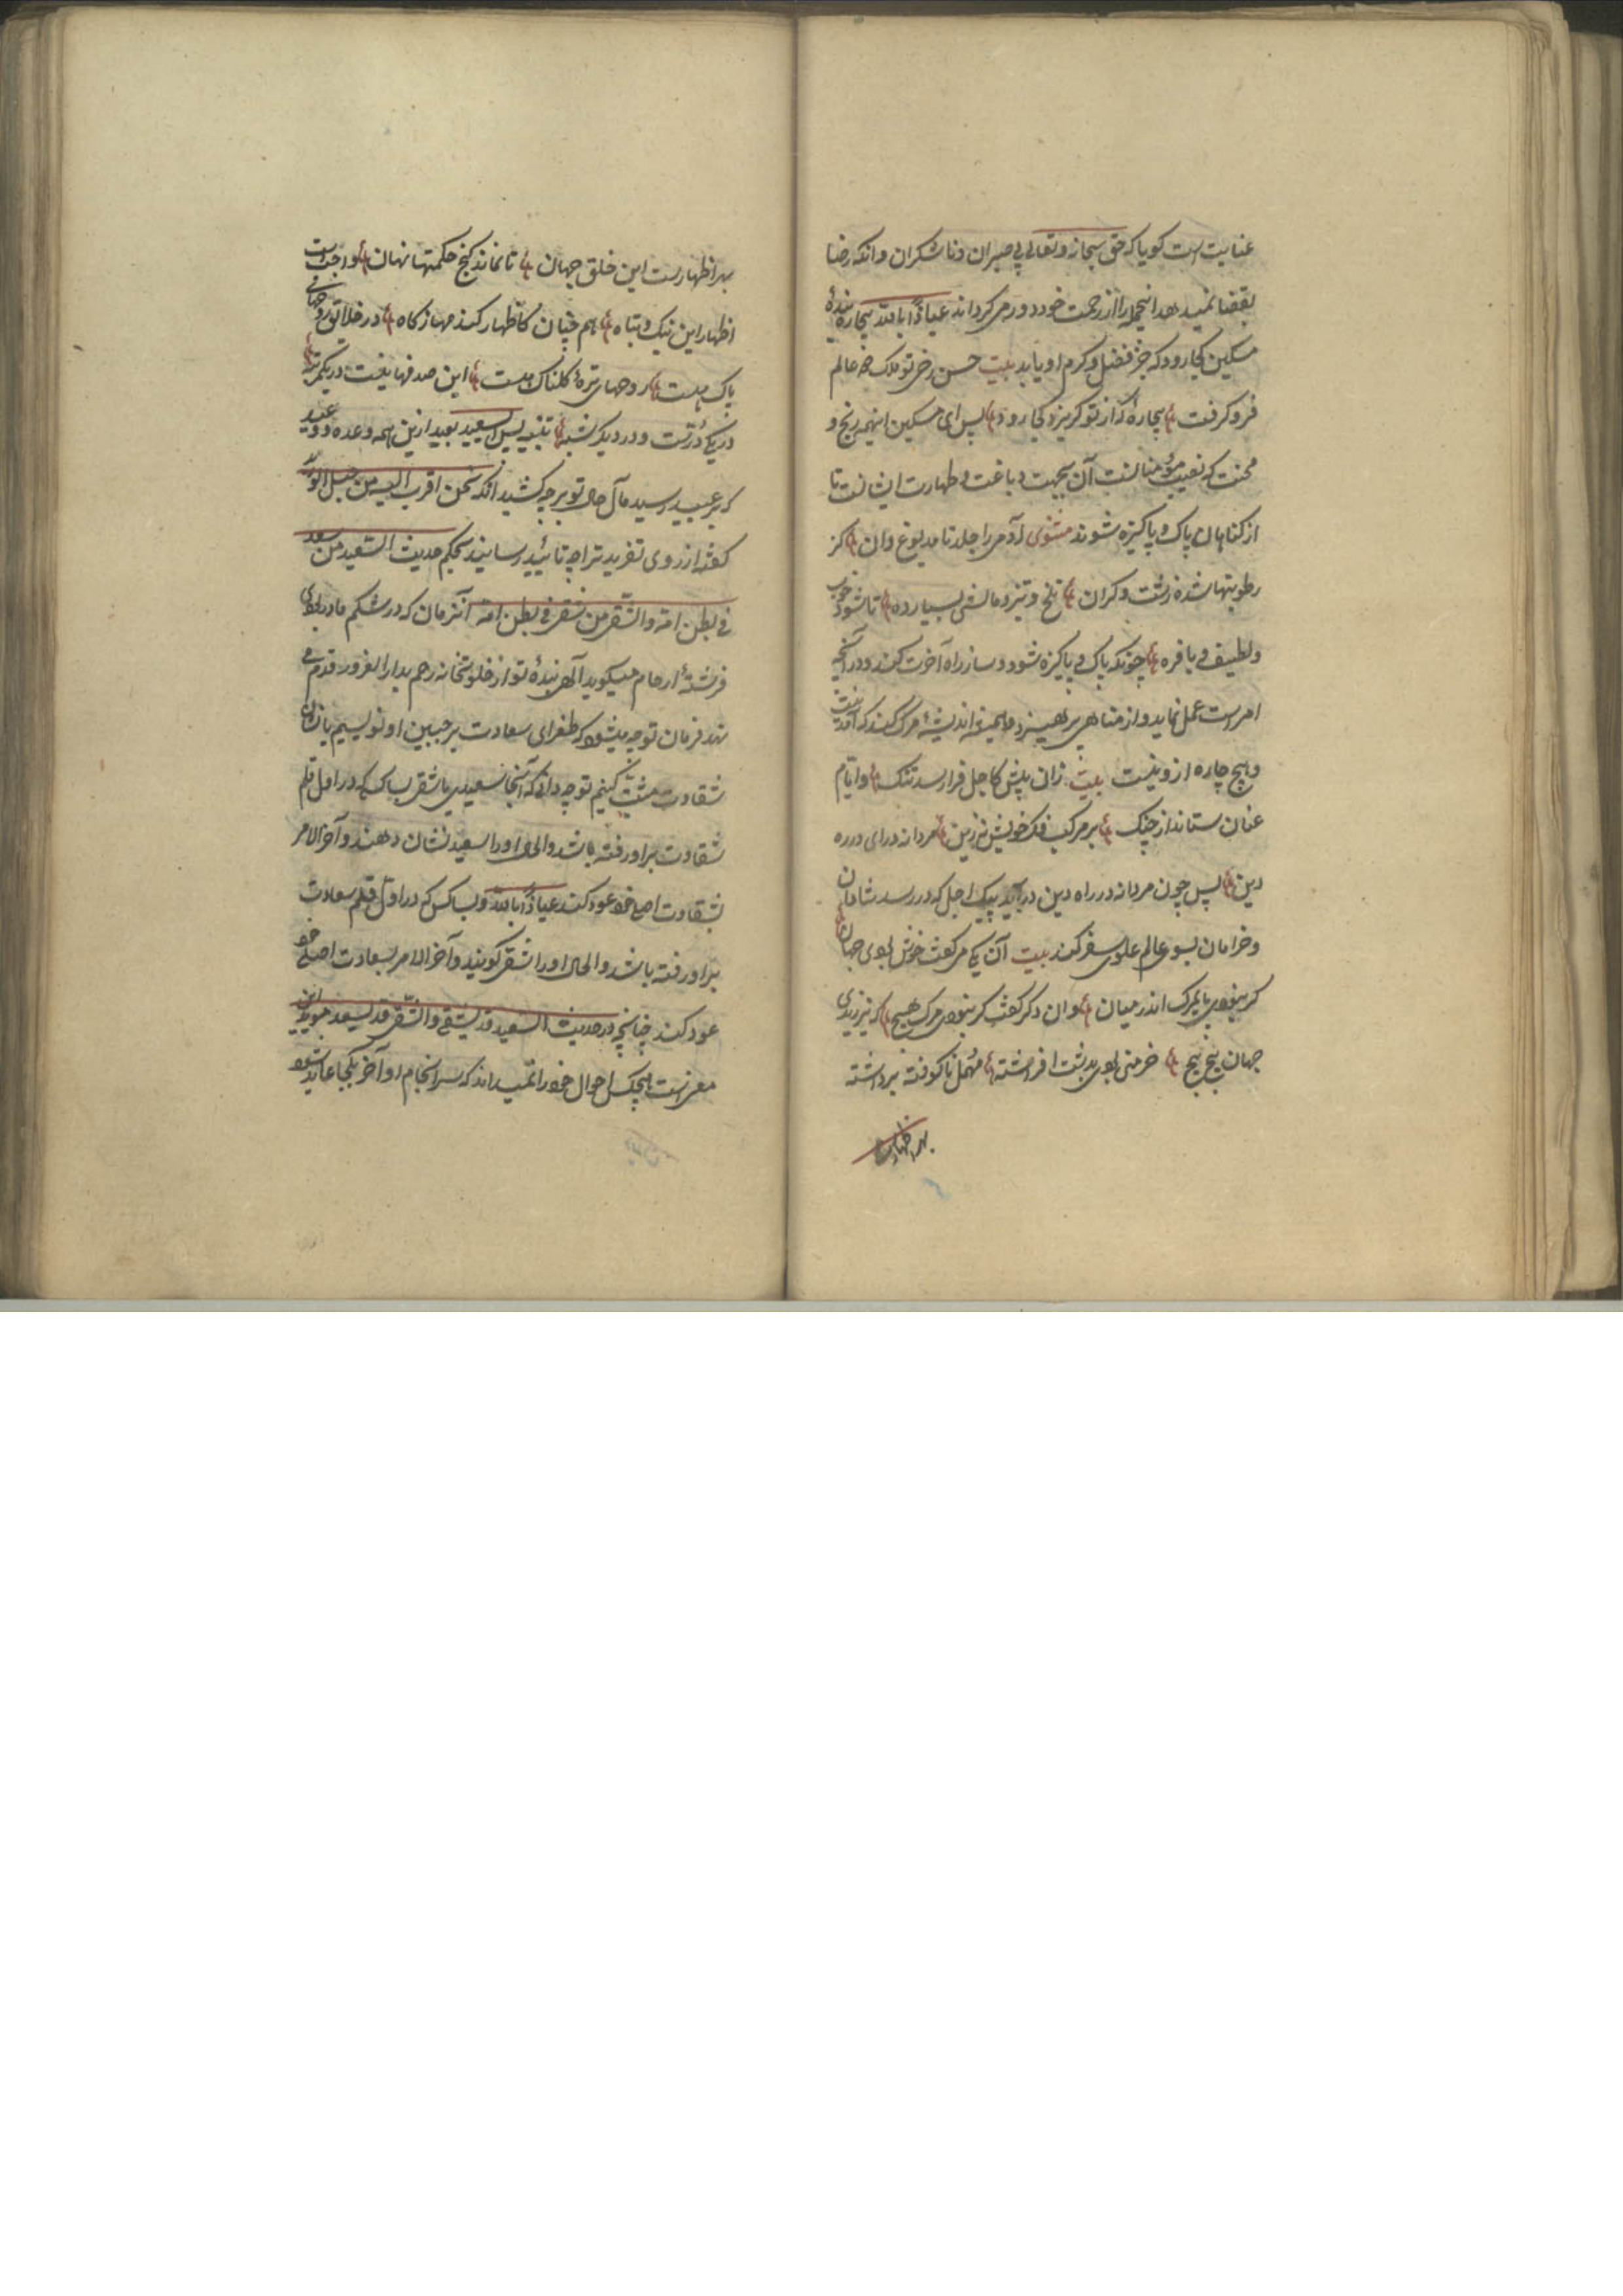 عنایت است کویا که حق سبحانه و تعالی بی صبران و ناشکران و آنکه رضا
بقضا نمیدهد اینجمله را از رحمت خود دور می کرداند عیاذًا بالله بیچاره بندهٔ
مسکین کجا رود که جز فضل و کرم او یابد بیت حسن رخ تو ملک همه عالم
فرو کرفت بیچارهٔ که از تو کریزد کجا رود پس ای مسکین اینهمه رنج و
محنت که نصیب مؤمنانست آن بجهت دباغت و طهارت ایشانست تا
از کناهان پاک و پاکیزه شوند مثنوی آدمی را جلد نامدبوغ دان کز
رطوبتها شده زشت و کران تلخ و تیز و مالش بسیار ده تا شود خوب
و لطیف و با فره چونکه پاک و پاکیزه شود و ساز راه آخرت کند و در آنچه
امرست عمل نماید و از مناهی بپرهیزد و همیشه اندیشهٔ مرک کند که آمدنیست
و هیچ چاره ازو نیست بیت زان پیش کاجل فرا رسد تنک و ایام
عنان ستاند از چنک بر مرکب فکر خویش نه زین مردانه درای در ره
دین پس چون مردانه در راه دین درآید پیک اجل که در رسد شادمان
و خرامان بسوی عالم علوی سفر کند بیت آن یکی می کفت خوش بودی جهان
کر نبودی پای مرک اندر میان وان دکر کفت کر نبودی مرک هیچ که نیرزیدی
جهان پیچ پیچ خرمنی بودی بدشت افراشته مهمل ناکوفته بزداشته
بهر اظهارست
بهر اظهارست این خلق جهان تا نماند کنج حکمتها نهان واجب است
اظهار این نیک و تباه هم چنان کاظهار کندمها ز کاه در خلایق روحهای
پاک هست روحهای تیرهٔ کلناک هست این صدفها نیست در یک مرتبه
در یکی درّست و در دیکر شبه تنبیه پس السعید بعید ازین همه وعده و وعید
که بر عبید رسید مآل حال تو بر چه کشید آنکه نحن اقرب الیه من حبل الورید
کفته از روی تفرید ترا چه تائید رسانید بحکم حدیث السعید من سعد
فی بطن امّه و الشّقی من شقی فی بطن امّه آنزمان که در شکم مادر بودی
فرشتهٔ ارحام میکوید الٓهی بندهٔ تو از خلوتخانه رحم بدار الغرور قدم می
نهد فرمان تو چه میشود که طغرای سعادت بر جبین او نویسیم یا نشان
شقاوت مثبت کنیم تو چه دانی که آنجا سعیدی یا شقی بسا کس که در اول قلم
شقاوت برو رفته باشد و الحال او را سعید نشان دهند و آخر الامر
بشقاوت اصلی خود عود کند عیاذًا بالله و بسا کس که در اول قلم سعادت
برو رفته باشد و الحال او را شقی کویند و آخر الامر بسعادت اصلی خود
عود کند چنانچه در حدیث السعید قد یشقی و الشّقی قد یسعد مؤید این
معنیست هیچکس احوال خود را نمیداند که سرانجام او آخر بکجا عاید شود